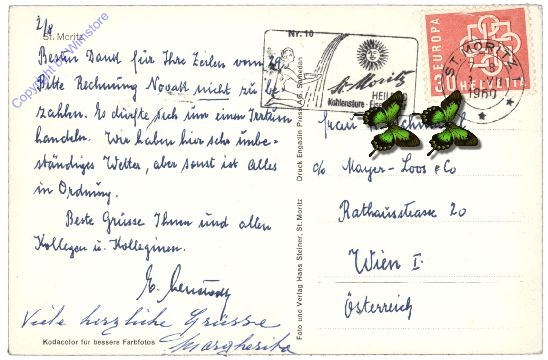 2/8
St. Moritz
Copyright by Wimstore
Besten Dank für Ihre Zeilen vom 29.
Bitte Rechnung Novatt nicht zu be-
zahlen. Es dürfte sich um einen Irrtum
handeln. Wir haben hier sehr unbe-
ständiges Wetter, aber sonst ist alles
in Ordnung.
Beste Grüsse Ihnen und allen
Kollegen u. Kolleginnen.
Viele herzliche Grüsse
Margherita
Kodacolor für bessere Farbfotos
Foto und Verlag Hans Steiner, St. Moritz
Druck Engadin Press AG, Samedan
Nr. 10
St. Moritz
HEIL
Kohlensäure - Eisen
EUROPA
HELVETIA
ST. MORITZ
1960
Frau
c/o Mayer-Loos & Co
Rathausstrasse 20
Wien I.
Österreich